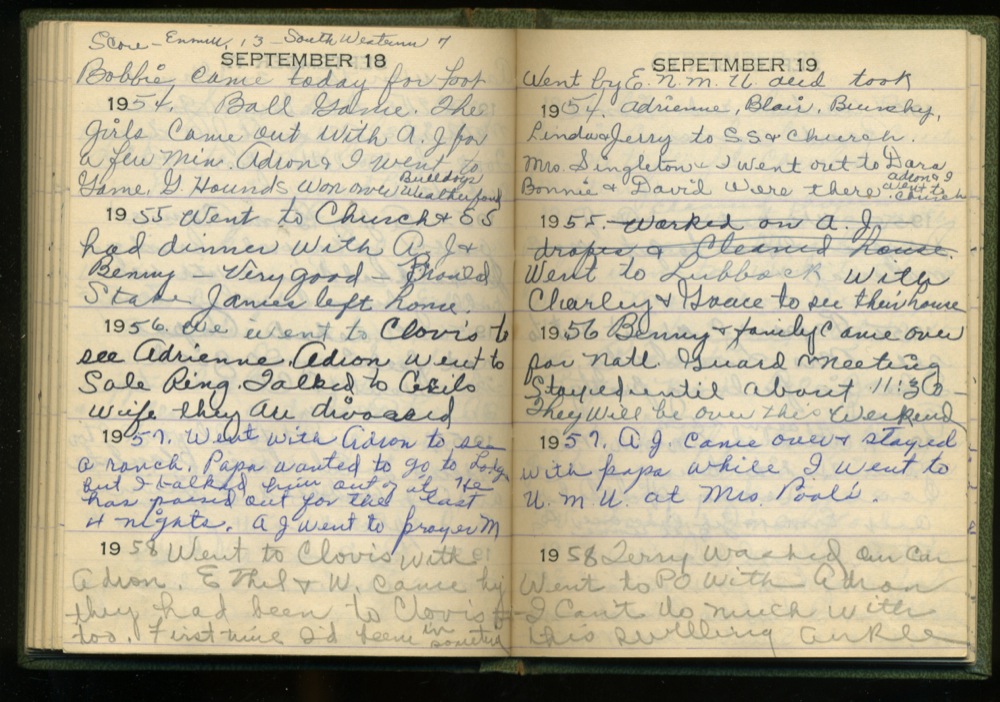 Score - Enmu, 13 - South Western 7
SEPTEMBER 18
Bobbie came today for foot
1954. Ball Game. The
girls came out with A. J for
a few min. Adron & I went to
Game. G. Hounds won over Bulldogs Weatherford
1955 Went to Church & S S
had dinner with A. J &
Benny - Very good - Broiled
Stake James left home.
1956. We went to Clovis to
see Adrienne. Adron went to
Sale Ring. Talked to
wife they are divoased
1957. Went with Adron to see
a ranch. Papa wanted to go to Lodge
but I talked him out of it. He
has passed out for the last
4 nights. A J went to prayer M
1958 Went to Clovis with
Adron. Ethel & W. came by
they had been to Clovis
too. First time I'd been in sometime
SEPETMBER 19
Went by E. N. M. U and took
1954. Adrienne, Blair, Bunchy,
Linda & Jerry to S S & Church.
Mrs. Singleton & I went out to Dara
Bonnie & David were there. Adron & I went to Church
1955. Worked on A. J
drapes & Cleaned house.
Went to Lubbock with
Charley & Grace to see their house
1956 Benny & family Came over
for Natl. Guard Meeting
Stayed until about 11:30 -
They will be over this weekend
1957. A J. came over & stayed
with papa while I went to
U. M. U. at Mrs Pool's.
1958 Terry washed our Car
Went to PO with Adron
I Can't do much with
this swlling ankle